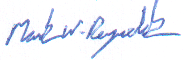 Mark W. Reynolds